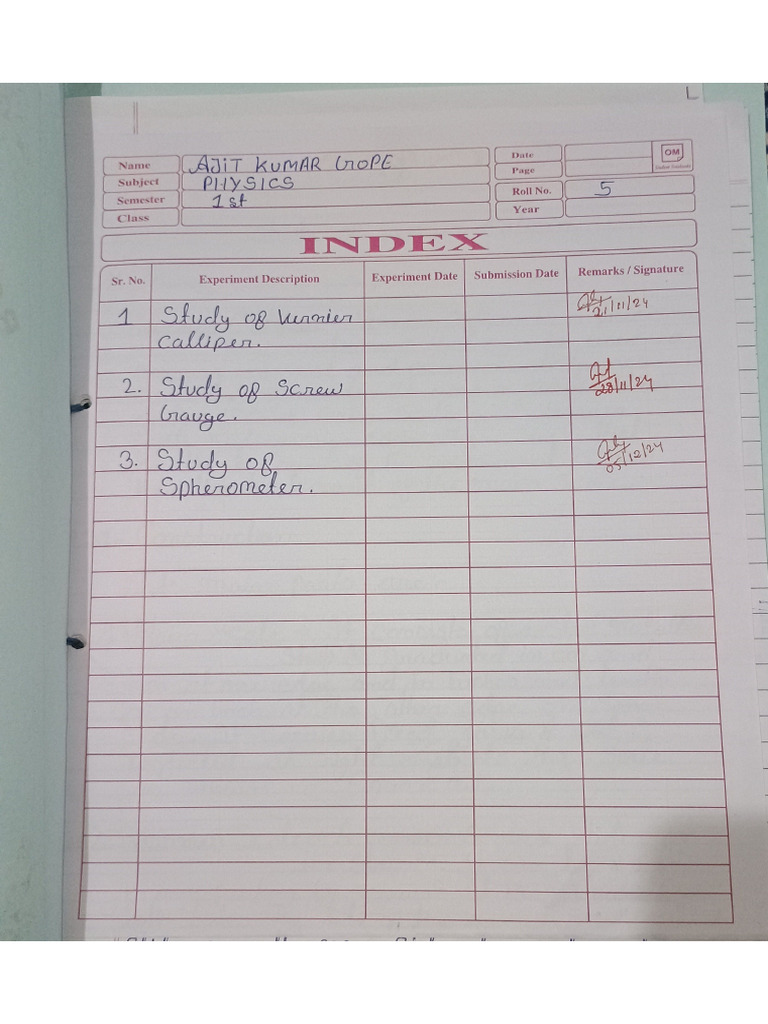 Name AJIT KUMAR GOPE
Subject PHYSICS
Semester 1st
Class
Date
Page
Roll No. 5
Year
OM
INDEX
Sr. No. Experiment Description Experiment Date Submission Date Remarks / Signature
1 Study of Vernier 21/11/24
Calliper.
2. Study of Screw 28/11/24
Gauge.
3. Study of 05/12/24
Spherometer.